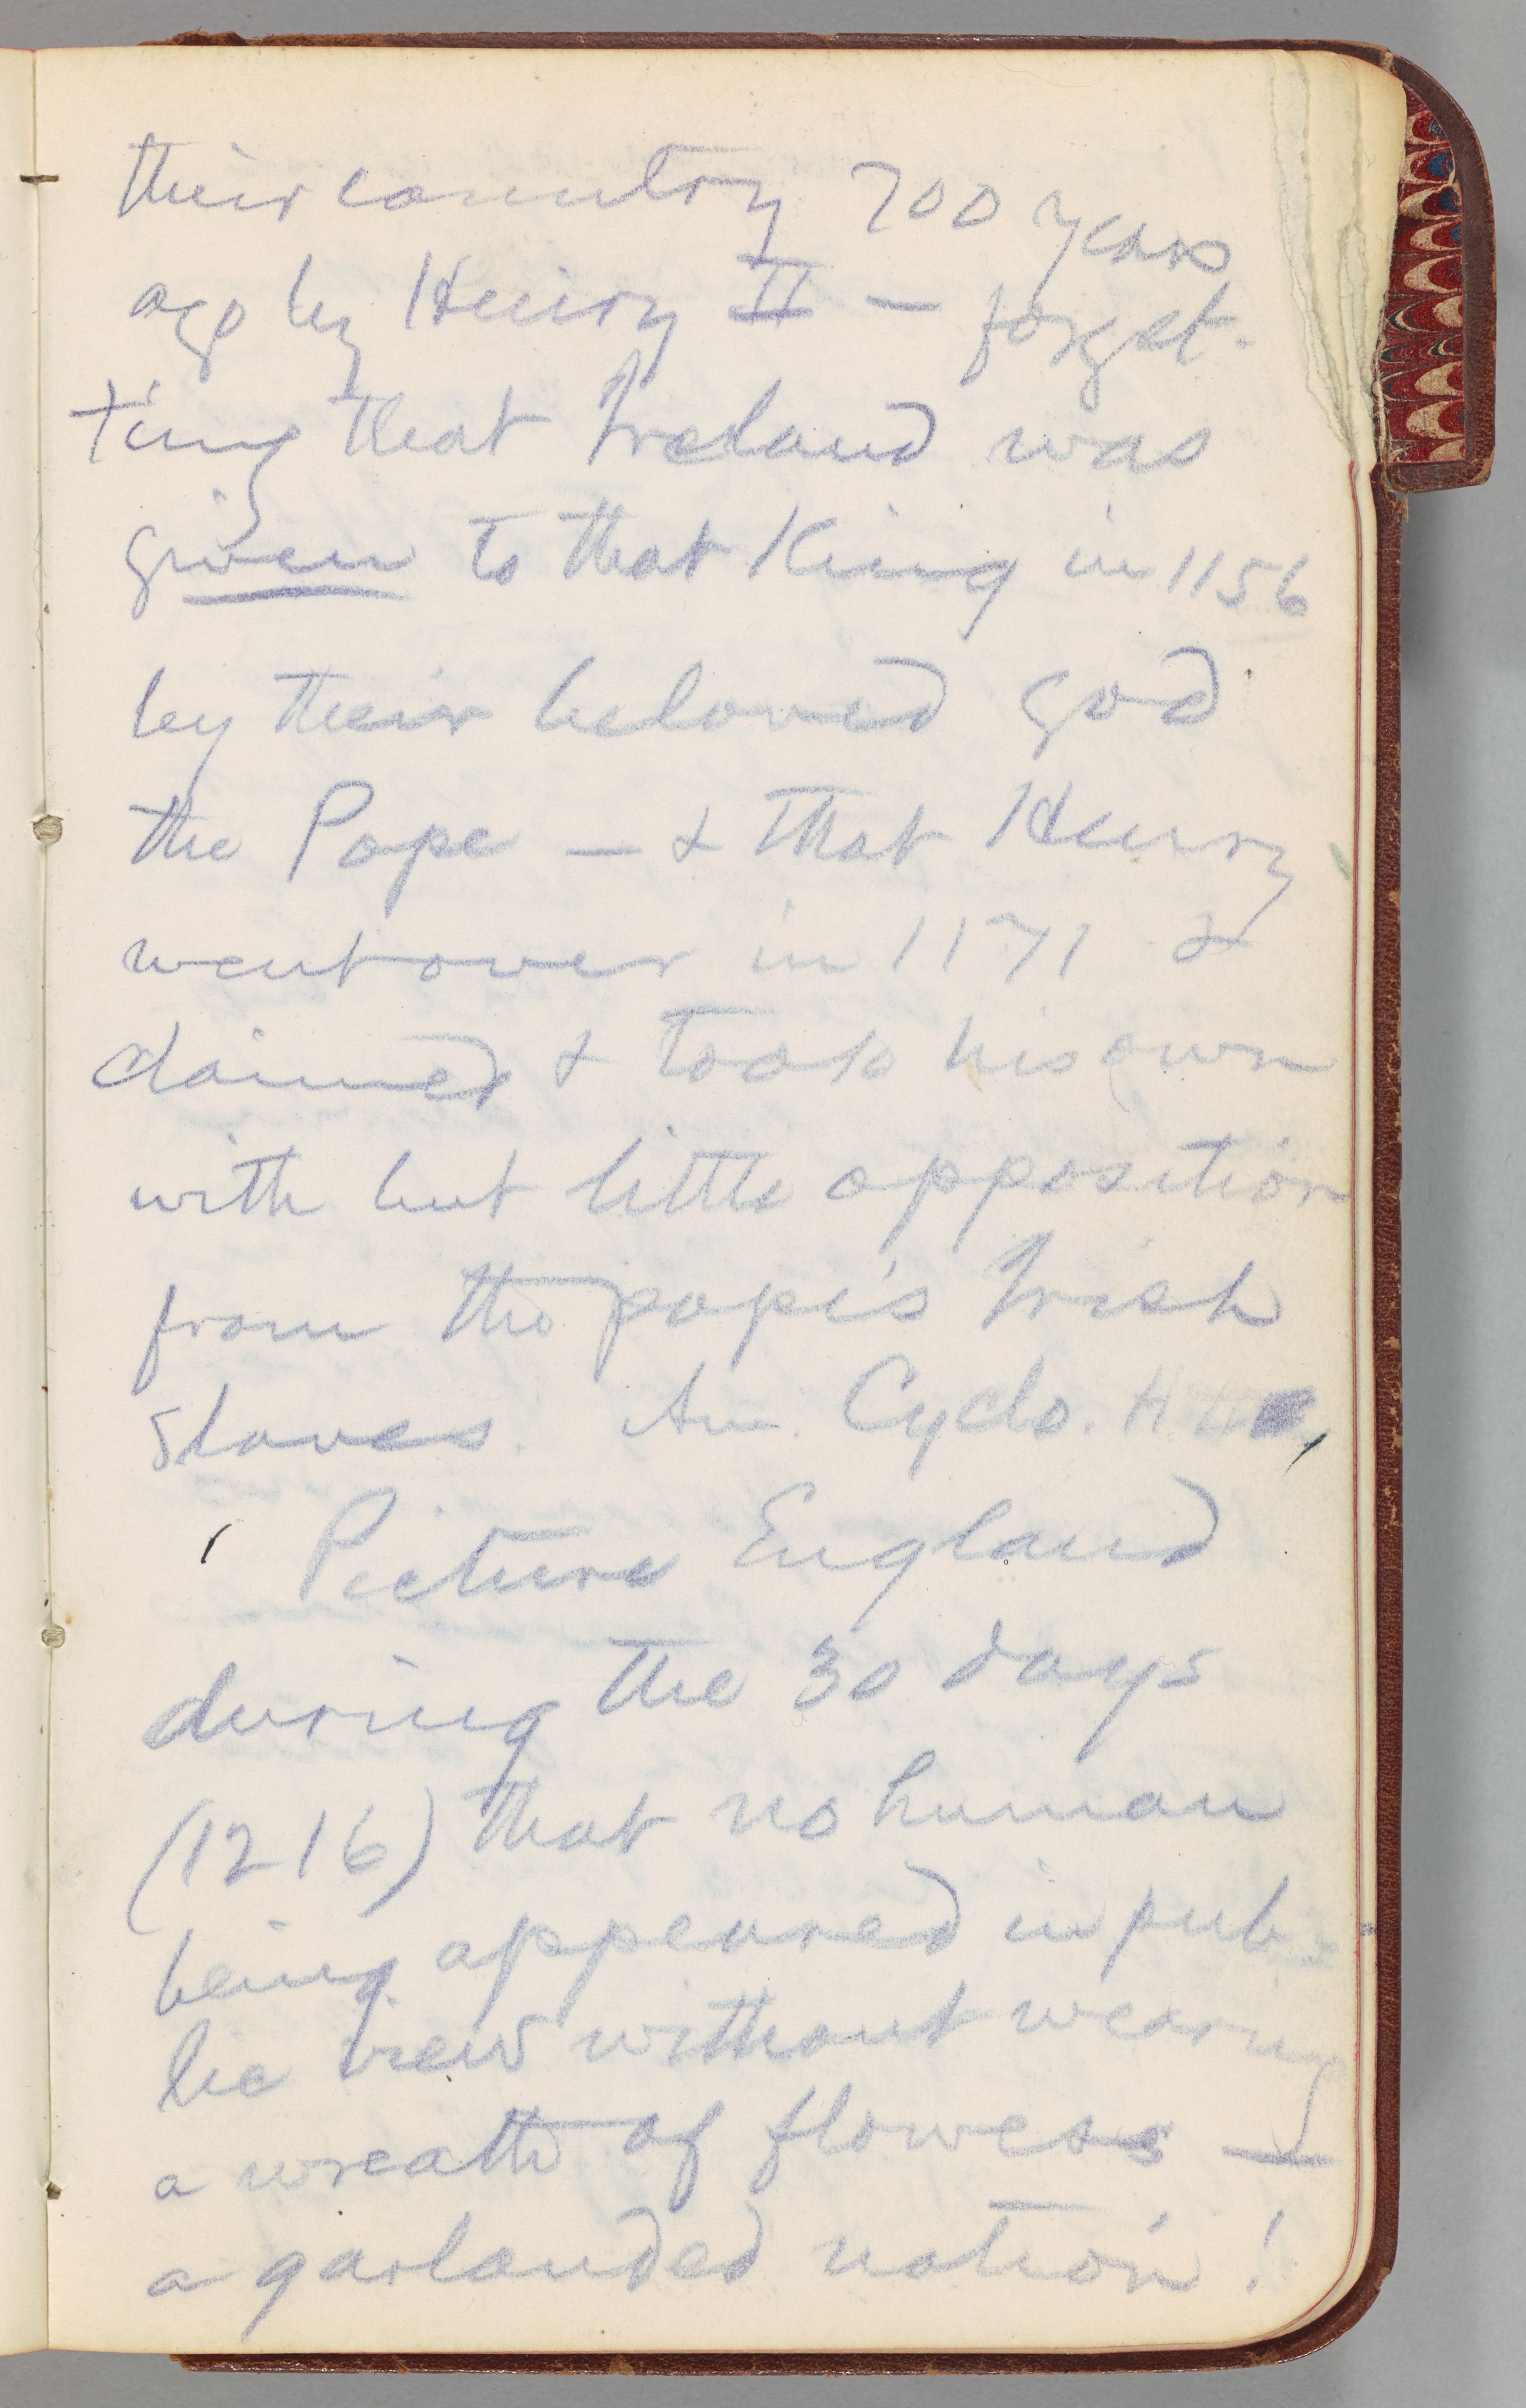 their country 700 years
ago by Henry II — forget-
ting that Ireland was
given to that King in 1156
by their beloved god
the Pope — & that Henry
went over in 1171 &
claimed & took his own
with but little opposition
from the pope's Irish
slaves. Am. Cyclo.
Picture England
during the 30 days
(1216) that no human
being appeared in pub-
lic view without wearing
a wreath of flowers —
a garlanded nation!